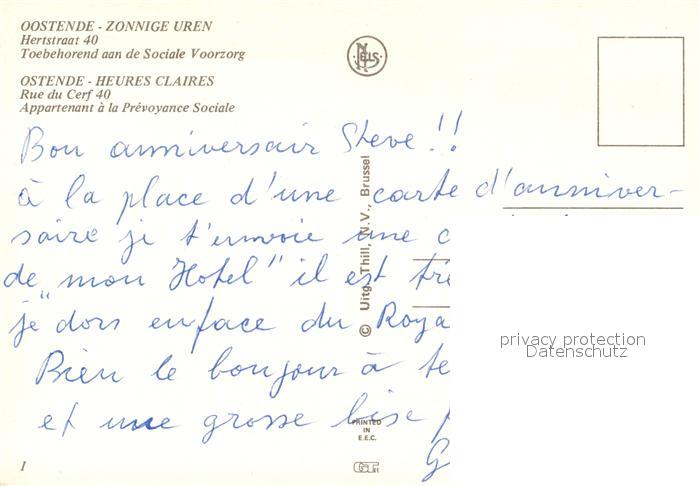 OOSTENDE - ZONNIGE UREN
Hertstraat 40
Toebehorend aan de Sociale Voorzorg
OSTENDE - HEURES CLAIRES
Rue du Cerf 40
Appartenant à la Prévoyance Sociale
NELS
Bon anniversair Steve !!
à la place d'une carte d'anniver-
saire je t'envoie une c
de "mon Hotel" il est trè
je dors enface du Roya
Bien le bonjour à te
et une grosse bise p
G
© Uitg. Thill, N.V., Brussel
PRINTED
IN
E.E.C.
1
privacy protection
Datenschutz